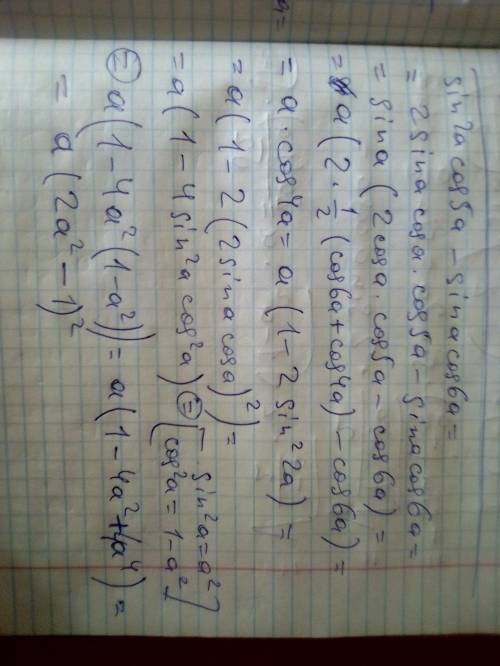 sin2a cos5a - sina cos6a =
= 2sina cosa · cos5a - sina cos6a =
= sina (2cosa · cos5a - cos6a) =
= a(2 · 1/2 (cos6a + cos4a) - cos6a) =
= a · cos4a = a (1 - 2 sin² 2a) =
= a (1 - 2 (2sina cosa)²) =
= a (1 - 4 sin²a cos²a) = [sin²a = a²
cos²a = 1 - a²]
= a (1 - 4a² (1 - a²)) = a (1 - 4a² + 4a⁴) =
= a (2a² - 1)²